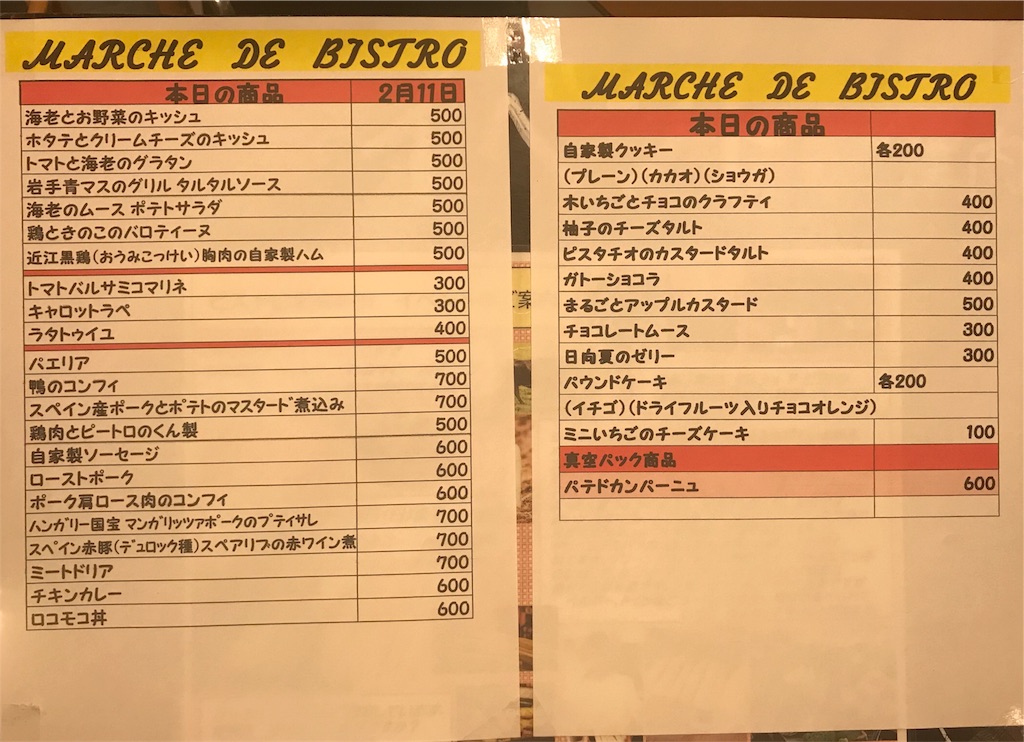 MARCHE DE BISTRO
本日の商品 2月11日
海老とお野菜のキッシュ 500
ホタテとクリームチーズのキッシュ 500
トマトと海老のグラタン 500
岩手青マスのグリル タルタルソース 500
海老のムース ポテトサラダ 500
鶏ときのこのバロティーヌ 500
近江黒鶏(おうみこっけい)胸肉の自家製ハム 500
トマトバルサミコマリネ 300
キャロットラペ 300
ラタトゥイユ 400
パエリア 500
鴨のコンフィ 700
スペイン産ポークとポテトのマスタード煮込み 700
鶏肉とピートロのくん製 500
自家製ソーセージ 600
ローストポーク 600
ポーク肩ロース肉のコンフィ 600
ハンガリー国宝 マンガリッツァポークのプティサレ 700
スペイン赤豚(デュロック種)スペアリブの赤ワイン煮 700
ミートドリア 700
チキンカレー 600
ロコモコ丼 600
MARCHE DE BISTRO
本日の商品
自家製クッキー 各200
(プレーン)(カカオ)(ショウガ)
木いちごとチョコのクラフティ 400
柚子のチーズタルト 400
ピスタチオのカスタードタルト 400
ガトーショコラ 400
まるごとアップルカスタード 500
チョコレートムース 300
日向夏のゼリー 300
パウンドケーキ 各200
(イチゴ)(ドライフルーツ入りチョコオレンジ)
ミニいちごのチーズケーキ 100
真空パック商品
パテドカンパーニュ 600